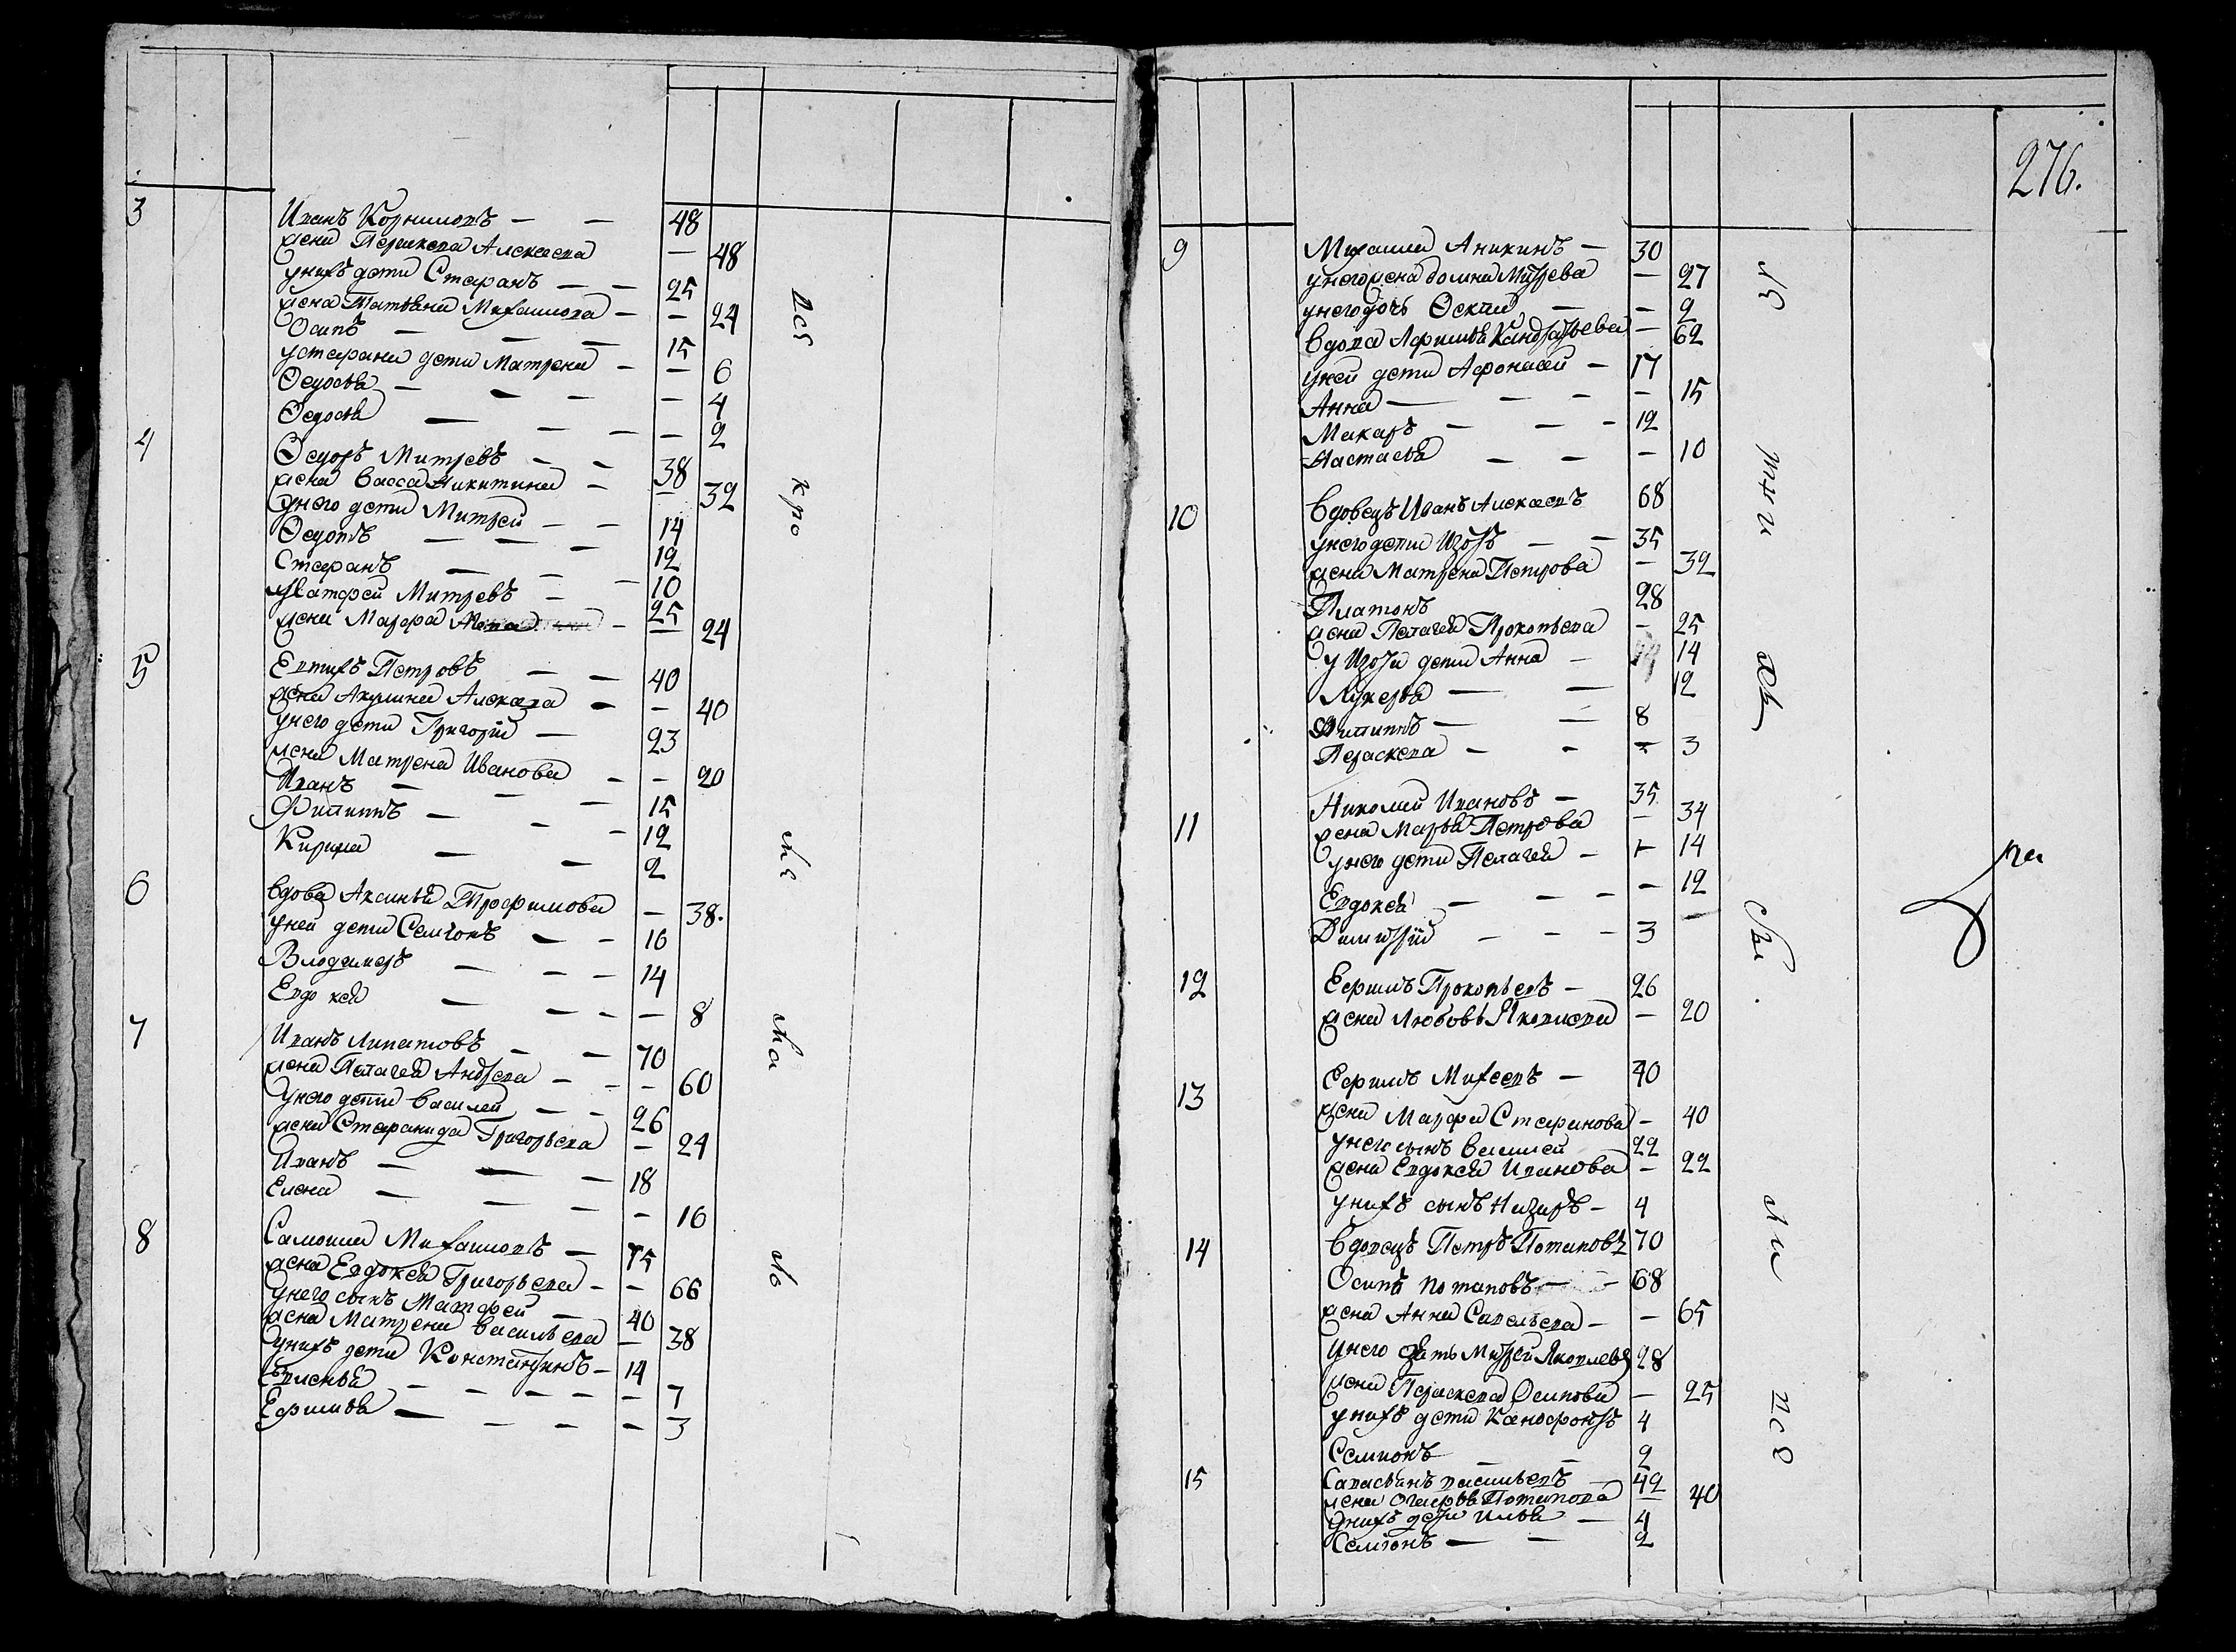 3 Иванъ Корниловъ — — 48
жена Параскева Алексеева — 48
у нихъ дети Стефанъ — — 25
жена Татьяна Михаилова — — 24
Осипъ — — — 15
у стефана дети Матрена — — 6
Ѳедосья — — — — 4
Ѳедосья — — — — 2
4 Ѳедоръ Митревъ — — 38
жена Васса Никитина — — 32
у него дети Митрей — — 14
Ѳедотъ — — — 12
Стефанъ — — — 10
Матфей Митревъ — 25
жена Марфа — — 24
5 Евтихъ Петровъ — — 40
жена Акулина Алексеева — — 40
у него дети Григорій — 23
жена Матрена Иванова — — 20
Иванъ — — — 15
Филиппъ — — — 12
Кирила — — 2
6 вдова Аксинья Трофимова — 38.
у ней дети Семионъ — — 16
Владимеръ — — — 14
Евдокея — — — — 8
7 Иванъ Липатовъ — — 70
жена Пелагея Андреева — — — 60
у него дети василей — — 26
жена Стефанида Григорьева — 24
Иванъ — — — 18
Елена — — — — 16
8 Самоила Михаиловъ — 75
жена Евдокея Григорьева — — 66
у него сынъ Матфей — 40
жена Матрена васильева — 38
у нихъ дети Константинъ — 14
— — — — — 7
Ефимья — — — — 3
все
кро
ме
ма
ло
276.
9 Михаила Аникинъ — 30
у него жена домна Митрева — 27
у него дочь Ѳекла — — 2
вдова Афимья Кандратьева — 62
у ней дети Афонасей — 17
Анна — — — — 15
Макаръ — — — 12
Настасья — — — 10
10 вдовецъ Иванъ Алексеевъ 68
у него дети Изотъ — — 35
жена Матрена Петрова — 32
Платонъ 28
жена Пелагея Прокопьева — 25
у Изота дети Анна — 14
Лукерья — — 12
Филиппъ — — 8
Параскева — — — 3
11 Николай Ивановъ — 35
жена Марья Петрова — 34
у него дети Пелагея — — 14
Евдокея — — — — 12
Димитрій — — — 3
12 Ефимъ Прокопьевъ — 26
жена Любовь Яковлева — 20
13 Ефимъ Михеевъ — 40
жена Марфа Стефанова — 40
у него сынъ василей 22
жена Евдокея Иванова — 22
у нихъ сынъ Назаръ — 4
14 вдовецъ Петръ Потаповъ 70
Осипъ потаповъ — — 68
жена Анна Савельева — — 65
у него зять Митрей Яковлевъ 28
жена Параскева Осипова — 25
у нихъ дети 4
Семионъ — — 2
15 васильевъ — 42
жена Потапова — 40
у нихъ дети Илья — 4
Семионъ — — 2